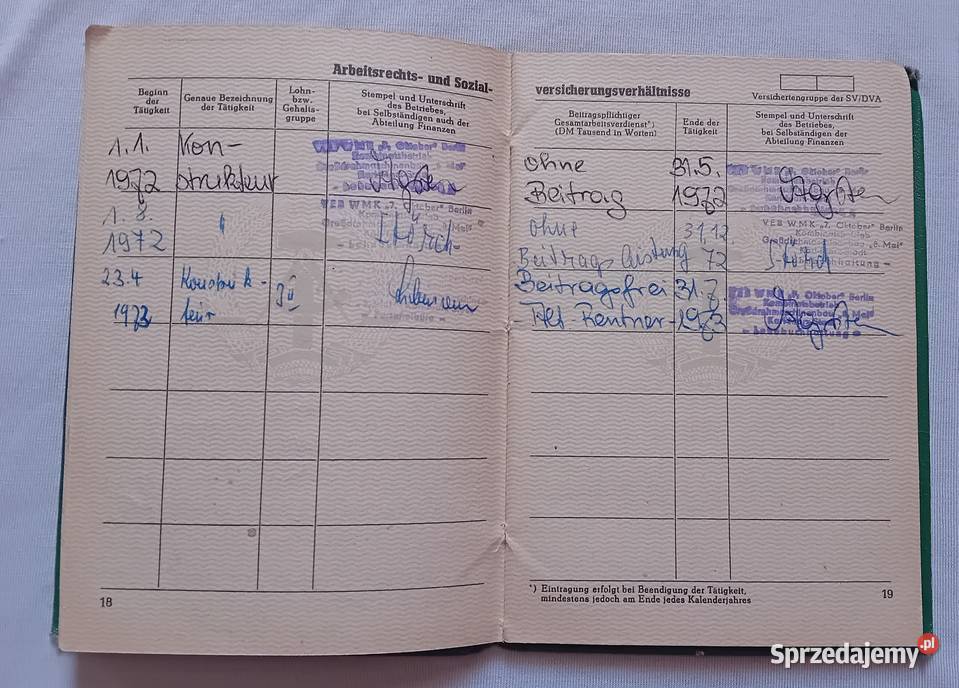 Arbeitsrechts- und Sozial-
Beginn
der
Tätigkeit
Genaue Bezeichnung
der Tätigkeit
Lohn-
bzw.
Gehalts-
gruppe
Stempel und Unterschrift
des Betriebes,
bei Selbständigen auch der
Abteilung Finanzen
1.1.
1972
Kon-
strukteur
VEB WMK „7. Oktober" Berlin
Kombinatsbetrieb
1. 8.
1972
"
VEB WMK „7. Oktober" Berlin
23.4
1973
Konstruk-
teur
18
versicherungsverhältnisse
Versichertengruppe der SV/DVA
Beitragspflichtiger
Gesamtarbeitsverdienst*)
(DM Tausend in Worten)
Ende der
Tätigkeit
Stempel und Unterschrift
des Betriebes,
bei Selbständigen der
Abteilung Finanzen
Ohne
Beitrag
31.5.
1972
VEB WMK „7. Oktober" Berlin
Kombinatsbetrieb
Großdrehmaschinenbau „8. Mai"
Ohne
Beitragsleistung
31.12
72
VEB WMK „7. Oktober" Berlin
Kombinatsbetrieb
Großdrehmaschinenbau „8. Mai"
Beitragsfrei
Alt Rentner
31.7.
1973
VEB WMK „7. Oktober" Berlin
Kombinatsbetrieb
Großdrehmaschinenbau „8. Mai"
*) Eintragung erfolgt bei Beendigung der Tätigkeit,
mindestens jedoch am Ende jedes Kalenderjahres
19
Sprzedajemy.pl